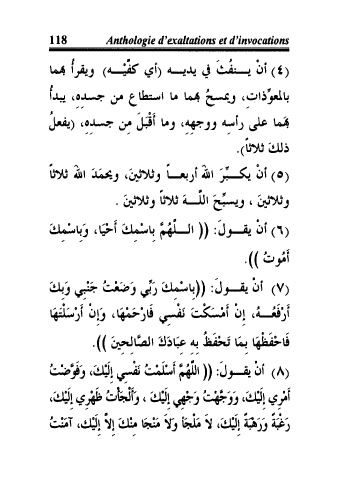 118 Anthologie d'exaltations et d'invocations
(٤) أنْ يـنفُثَ في يديـه (أي كفَّيْـه) ويقرأُ بهما
بالمعوِّذاتِ، ويمسحُ بهما ما استطاع من جسدِه، يبدأُ
بهما على رأسِه ووجهِه، وما أَقْبَلَ من جسدِه، (يفعلُ
ذلكَ ثلاثاً).
(٥) أنْ يكـبِّرَ اللهَ أربعـاً وثلاثينَ، ويحمَدَ اللهَ ثلاثاً
وثلاثينَ ، ويسبِّحَ اللـهَ ثلاثاً وثلاثينَ .
(٦) أنْ يقـولَ: (( الـلَّهُمَّ بِاسْمِكَ أَحْيَا، وَبِاسْمِكَ
أَمُوتُ )).
(٧) أنْ يقـولَ: ((بِاسْمِكَ رَبِّي وَضَعْتُ جَنْبِي وَبِكَ
أَرْفَعُـهُ، إِنْ أَمْسَكْتَ نَفْسِي فَارْحَمْهَا، وَإِنْ أَرْسَلْتَهَا
فَاحْفَظْهَا بِمَا تَحْفَظُ بِهِ عِبَادَكَ الصَّالِحِينَ )).
(٨) أنْ يقـولَ: (( اللَّهُمَّ أَسْلَمْتُ نَفْسِي إِلَيْكَ، وَفَوَّضْتُ
أَمْرِي إِلَيْكَ، وَوَجَّهْتُ وَجْهِي إِلَيْكَ ، وَأَلْجَأْتُ ظَهْرِي إِلَيْكَ،
رَغْبَةً وَرَهْبَةً إِلَيْكَ، لاَ مَلْجَأَ وَلاَ مَنْجَا مِنْكَ إِلاَّ إِلَيْكَ، آمَنْتُ